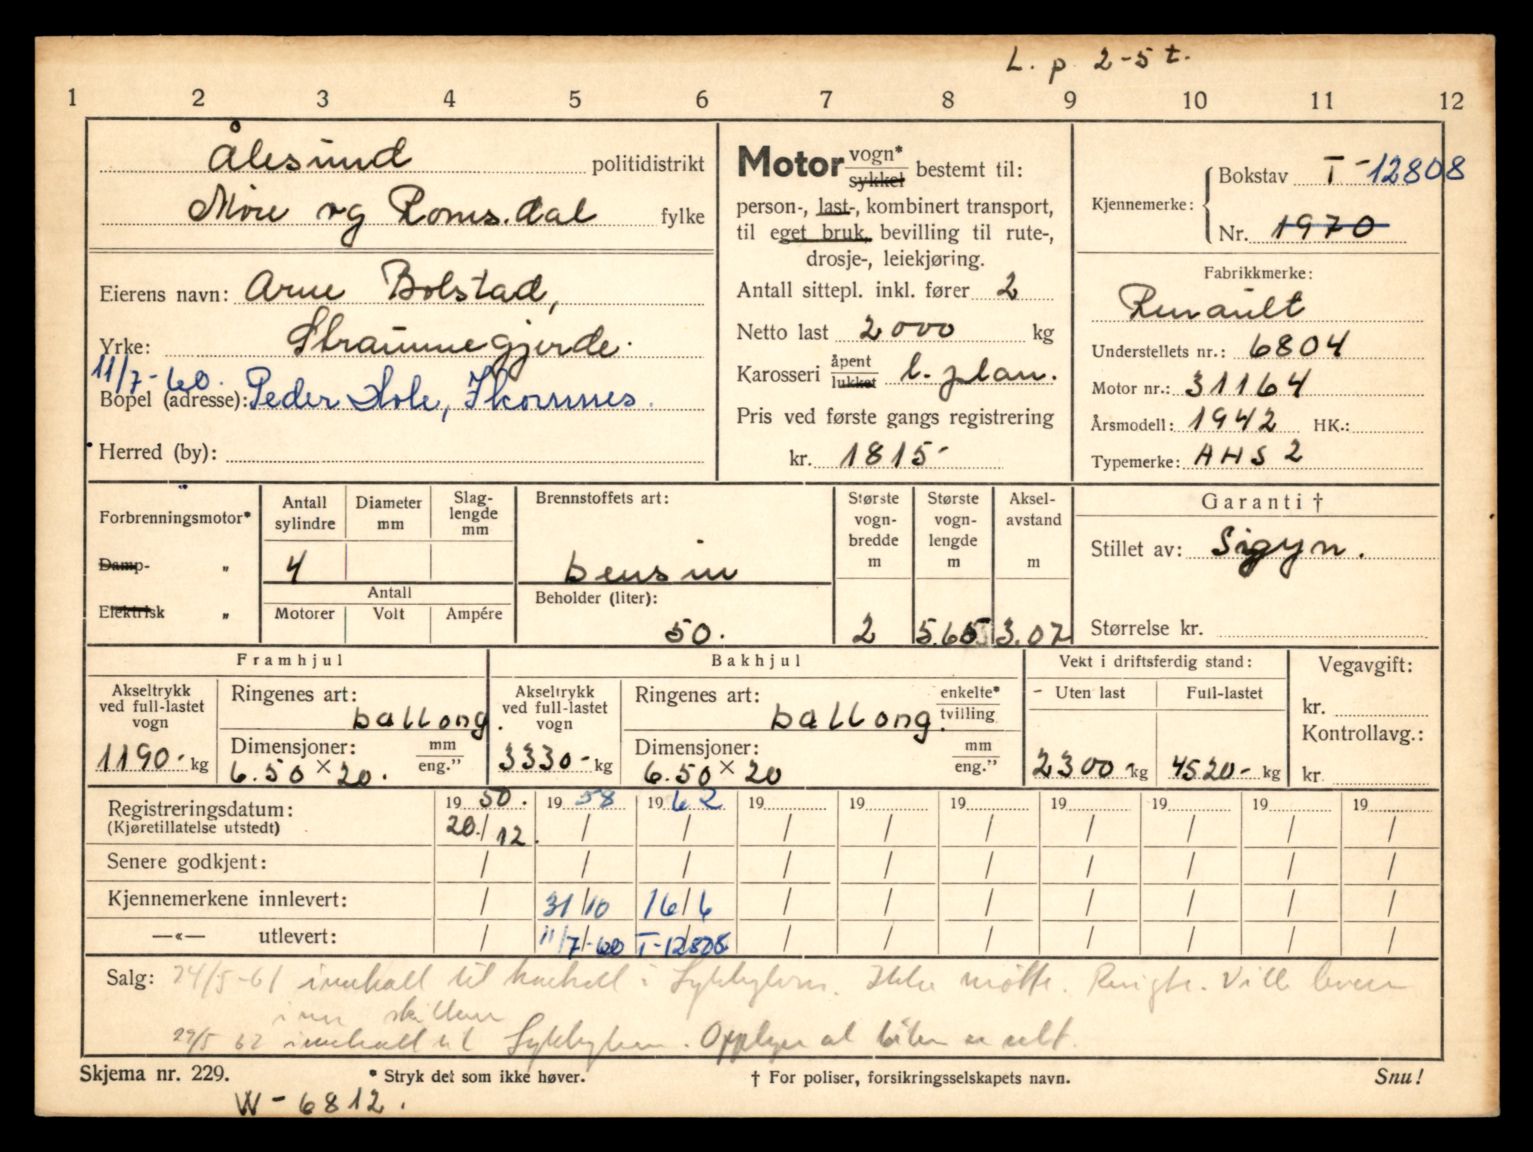 L. p. 2-5 t.
1 2 3 4 5 6 7 8 9 10 11 12
Ålesund politidistrikt
Møre og Romsdal fylke
Eierens navn: Arne Bolstad,
Yrke: Straumegjerde.
11/7-60.
Bopel (adresse): Peder Hole, Ikornnes.
Herred (by):
Motor vogn* sykkel bestemt til:
person-, last-, kombinert transport,
til eget bruk, bevilling til rute-,
drosje-, leiekjøring.
Antall sittepl. inkl. fører 2
Netto last 2000 kg
Karosseri åpent lukket l. plan.
Pris ved første gangs registrering
kr. 1815-
Kjennemerke: Bokstav T-12808
Nr. 1970
Fabrikkmerke:
Renault
Understellets nr.: 6804
Motor nr.: 31164
Årsmodell: 1942 HK.:
Typemerke: AHS 2
Forbrenningsmotor*
Damp- „
Elektrisk „
Antall sylindre Diameter mm Slag-lengde mm
4
Antall
Motorer Volt Ampére
Brennstoffets art:
bensin
Beholder (liter):
50.
Største vogn-bredde m
2
Største vogn-lengde m
5.65
Aksel-avstand m
3.07
Garanti †
Stillet av: Sigyn.
Størrelse kr.
Framhjul
Akseltrykk ved full-lastet vogn
1190- kg
Ringenes art:
ballong.
Dimensjoner: mm eng."
6.50 × 20.
Bakhjul
Akseltrykk ved full-lastet vogn
3330- kg
Ringenes art: enkelte* tvilling
ballong.
Dimensjoner: mm eng."
6.50 × 20
Vekt i driftsferdig stand:
- Uten last Full-lastet
2300 kg 4520- kg
Vegavgift:
kr.
Kontrollavg.:
kr.
Registreringsdatum: 19 50. 19 58 19 62 19 19 19 19 19 19 19
(Kjøretillatelse utstedt) 20./12. / / / / / / / / /
Senere godkjent: / / / / / / / / / /
Kjennemerkene innlevert: / 31/10 16/6 / / / / / / /
—«— utlevert: / 11/7-60 T-12808 / / / / / / /
Salg: 24/5-61 innkalt til kontroll i Sykkylven. Ikke møtt. Ringte. Ville levere
inn skiltene
29/5 62 innkalt til Sykkylven. Opplyser at bilen er solt.
Skjema nr. 229. * Stryk det som ikke høver. † For poliser, forsikringsselskapets navn. Snu!
W-6812.